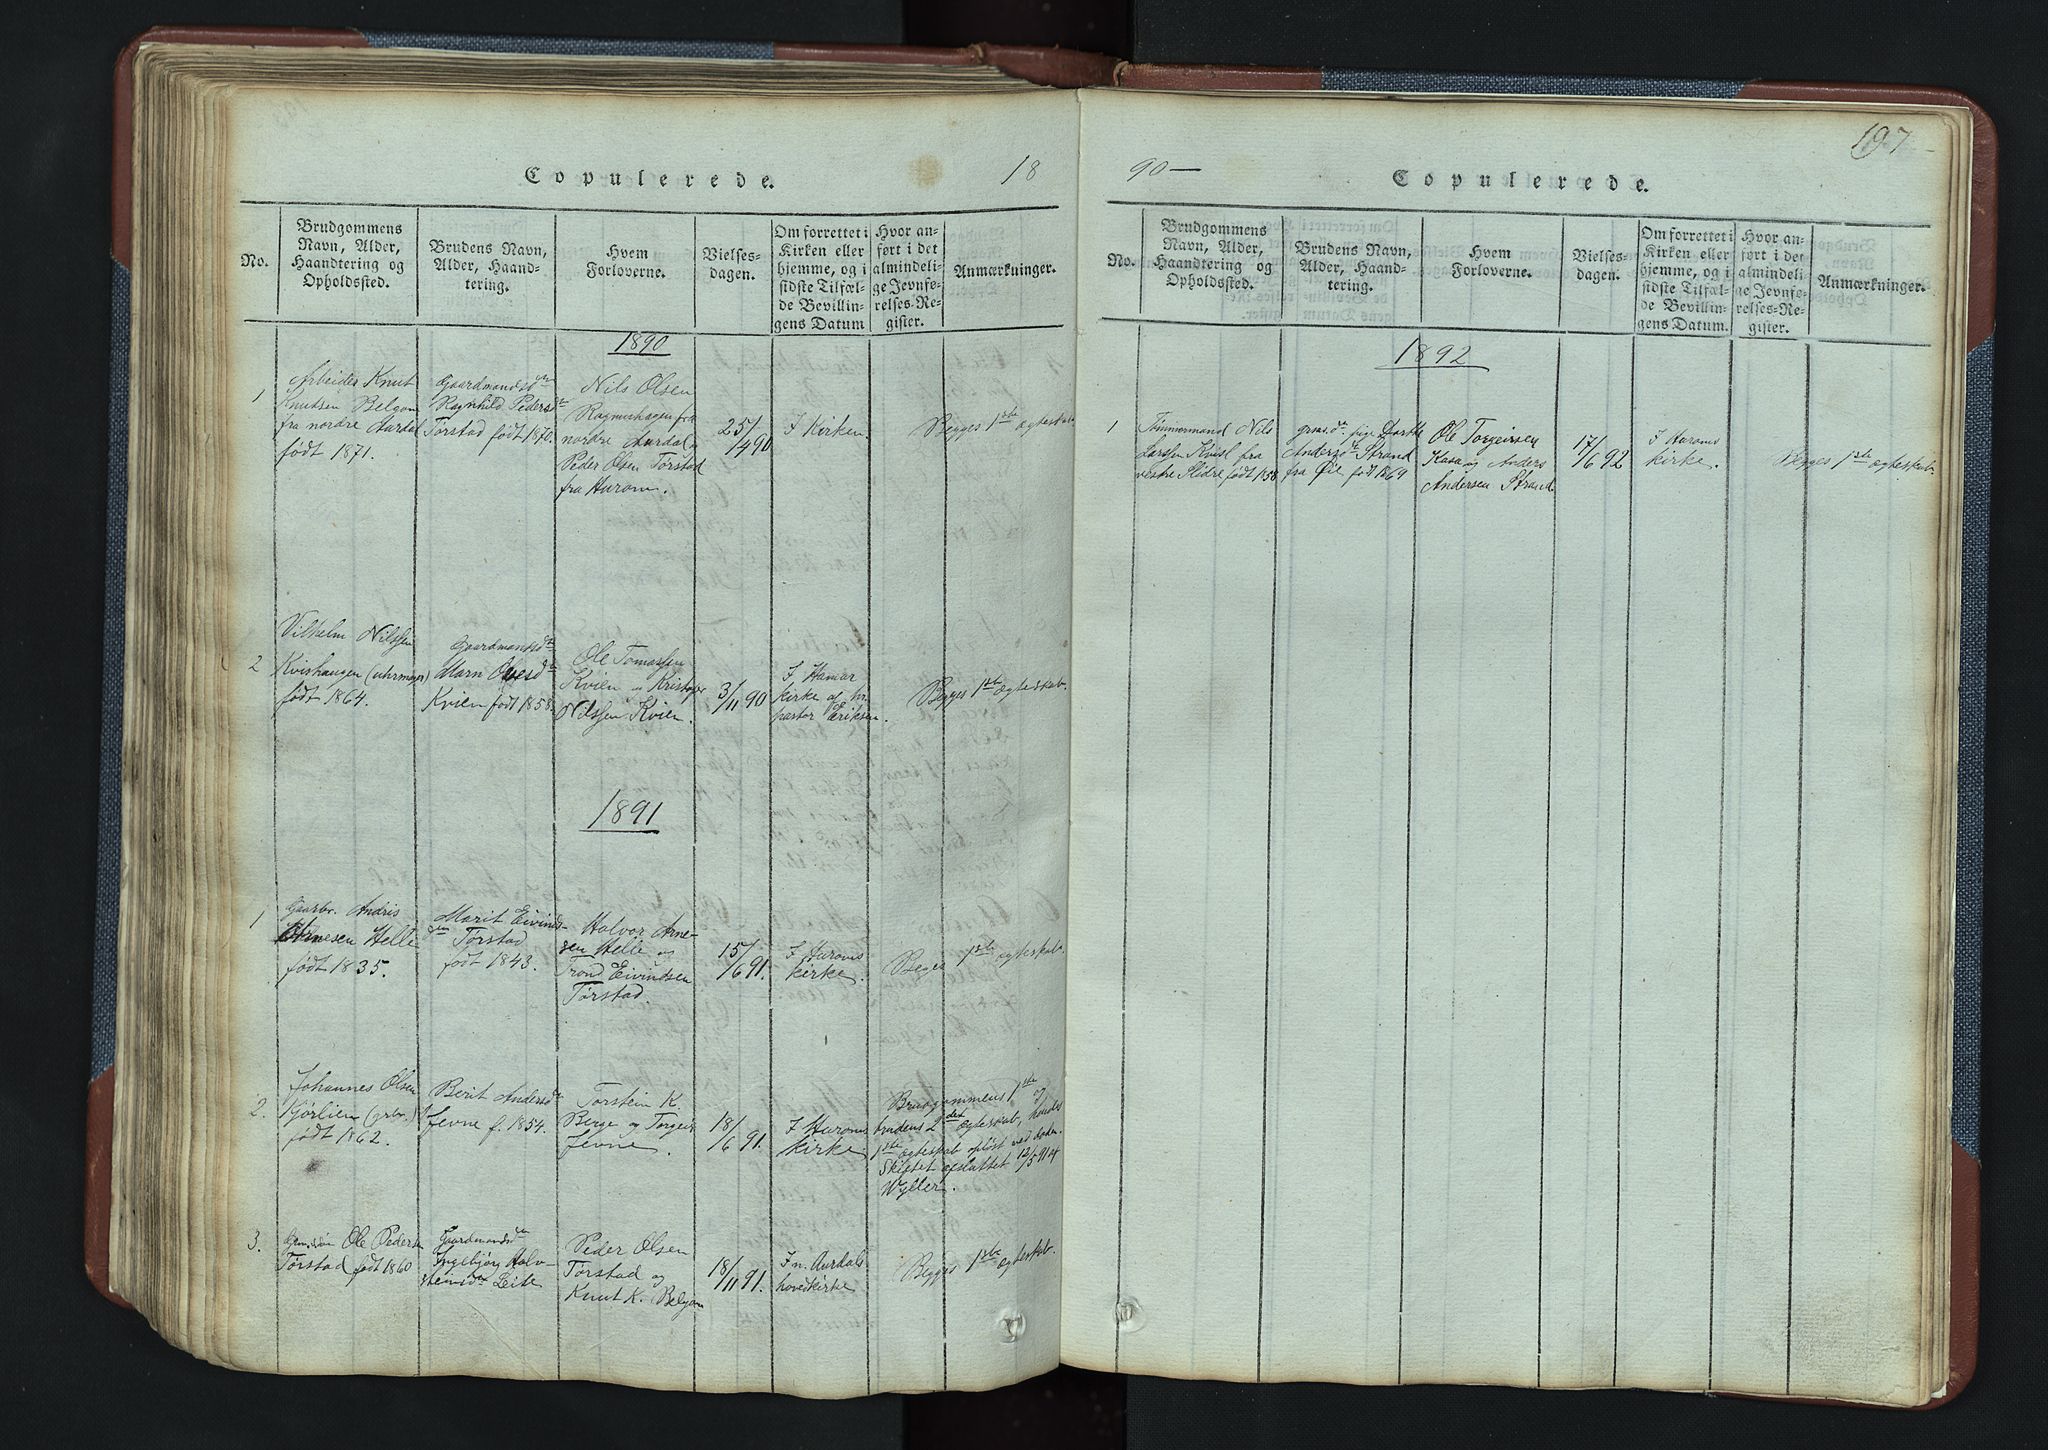 Copulerede.
18
No.
Brudgommens
Navn, Alder,
Haandtering og
Opholdssted.
Brudens Navn,
Alder, Haand-
tering.
Hvem
Forloverne.
Vielses-
dagen.
Om forrettet i
Kirken eller
hjemme, og i
sidste Tilfæl-
de Bevillin-
gens Datum
Hvor an-
ført i det
almindeli-
ge Jevnfø-
relses-Re-
gister.
Anmærkninger.
1890
1
Arbeider Knut
Knutsen Belgom
fra nordre Aurdal
født 1871.
Gaardmandsdtr
Ragnhild Pedersdtr
Tørstad født 1870.
Nils Olsen
Ragnushagen fra
nordre Aurdal
Peder Olsen Tørstad
fra Hurom.
25/4 90
I Kirken.
Begges 1ste ægteskab.
2
Vilhelm Nilssen
Kvishaugen (uhrmager)
født 1864.
Gaardmandsdtr
Marn Olsesdtr
Kvien født 1858.
Ole Tomassen
Kvien og Kristoffer
Nilssen Kvien.
3/11 90
I Hamar
kirke af hr.
pastor Eriksen.
Begges 1ste ægteskab.
1891
1
Gaarbr. Andris
Arnesen Helle
født 1835.
Marit Eivinds-
Tørstad
født 1843.
Halvor Arne-
sen Helle og
Trond Eivindsen
Tørstad.
15/6 91.
I Huroms
kirke.
Beges 1ste ægteskab.
2.
Johannes Olsen
Kjørlien (grbr.)
født 1862.
Berit Andersdtr
Jevne f. 1854.
Torstein K.
Berge og Torgeir
Jevne.
18/6 91.
I Huroms
kirke
Brudgommens 1ste og
brudens 2det ægteskab, hendes
1ste ægteskab opløst ved døden.
Skiftet afsluttet 12/5 91 af
Wyller.
3.
Grmdsøn Ole Pedersen
Tørstad født 1860
Gaardmandsdtr
Ingebjørg Halv-
steinsdtr Leite
Peder Olsen
Tørstad og
Knut K. Belgom
18/11 91.
I n. Aurdals
hovedkirke
Begges 1ste ægteskab.
90 —
Copulerede.
197
No.
Brudgommens
Navn, Alder,
Haandtering og
Opholdssted.
Brudens Navn,
Alder, Haand-
tering.
Hvem
Forloverne.
Vielses-
dagen.
Om forrettet i
Kirken eller
hjemme, og i
sidste Tilfæl-
de Bevillin-
gens Datum.
Hvor an-
ført i det
almindeli-
ge Jevnfø-
relses-Re-
gister.
Anmærkninger.
1892
1
Tømmermand Nils
Larssen Kvisl fra
vestre Slidre født 1858
grmdsdtr pige Dorthe
Andersdtr Strand
fra Øie født 1869
Ole Torgeirsen
Kasa og Anders
Andersen Strand.
17/6 92
I Huroms
kirke.
Begges 1ste ægteskab.